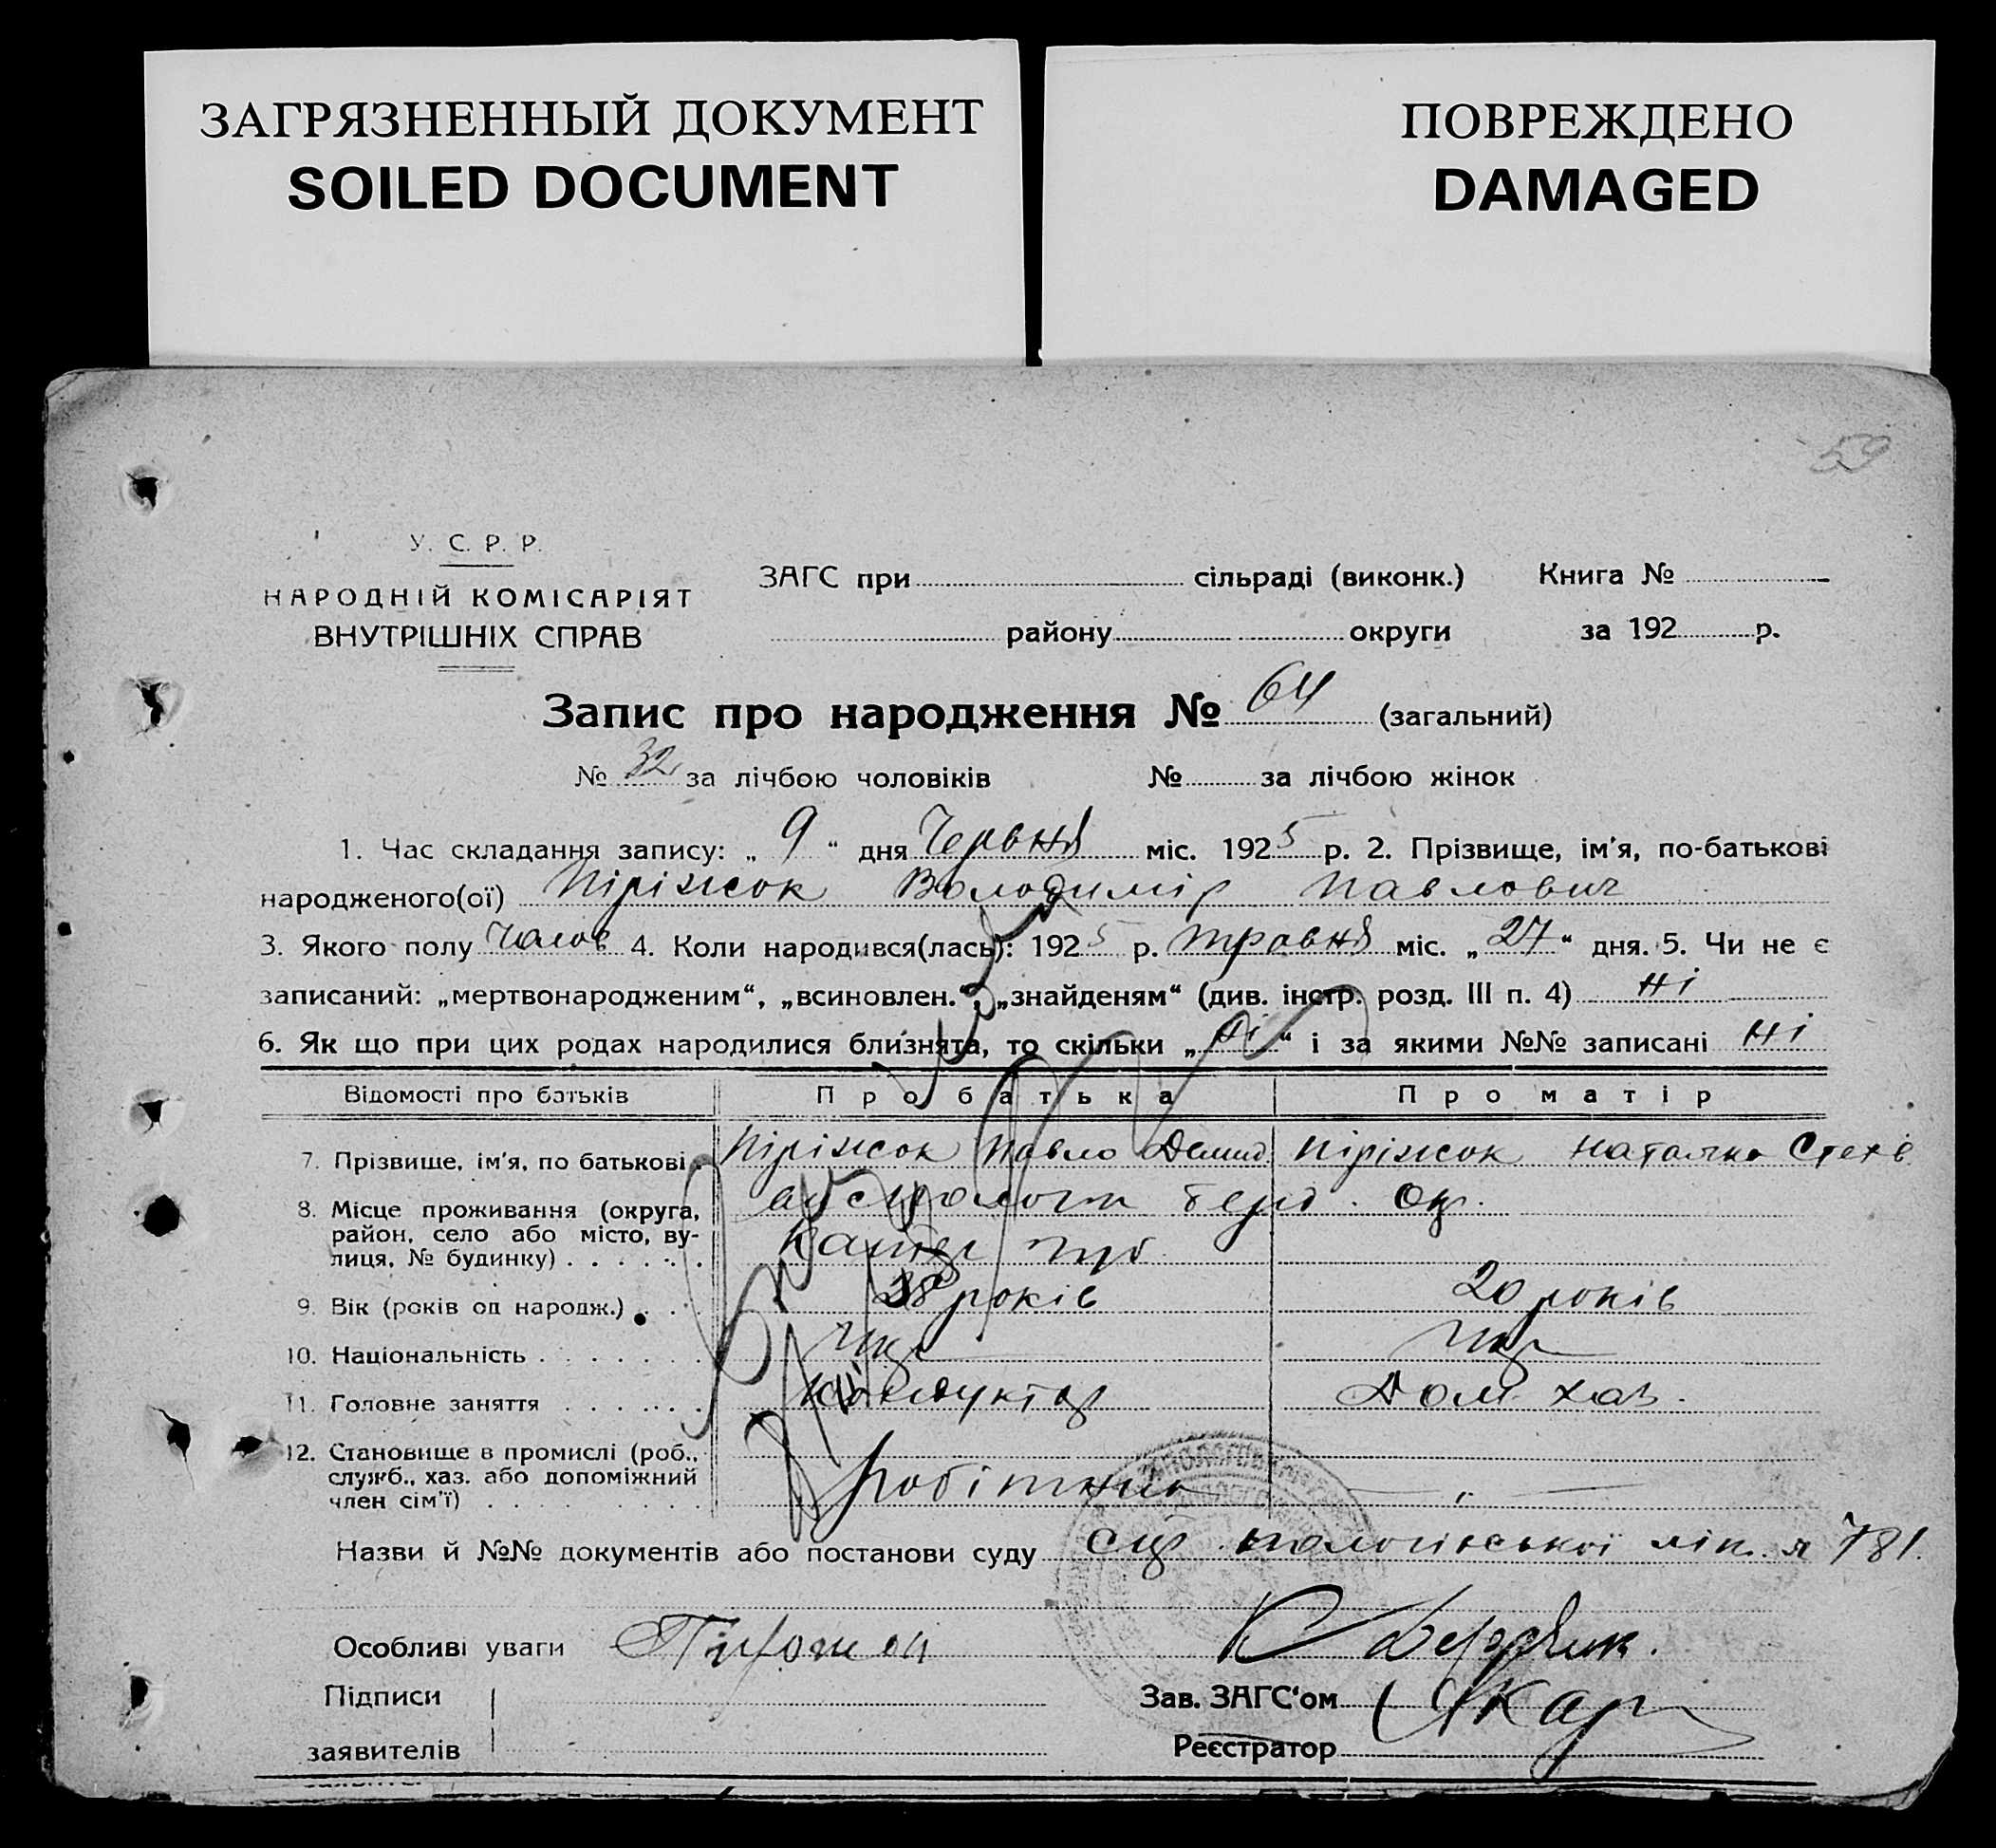 ЗАГРЯЗНЕННЫЙ ДОКУМЕНТ
SOILED DOCUMENT
ПОВРЕЖДЕНО
DAMAGED
59
У. С. Р. Р.
НАРОДНІЙ КОМІСАРІЯТ
ВНУТРІШНІХ СПРАВ
ЗАГС при сільраді (виконк.) Книга №
району округи за 192 р.
Запис про народження № 64 (загальний)
№ 32 за лічбою чоловіків № за лічбою жінок
1. Час складання запису: „ 9 “ дня Червня міс. 1925 р. 2. Прізвище, ім'я, по-батькові
народженого(ої) Піріжок Володимір Павлович
3. Якого полу Чолов 4. Коли народився(лась): 1925 р. Травня міс. „ 27 “ дня. 5. Чи не є
записаний: „мертвонародженим“, „всиновлен.“, „знайденям“ (див. інстр. розд. III п. 4) ні
6. Як що при цих родах народилися близнята, то скільки „ ні “ і за якими №№ записані ні
Відомості про батьків Про батька Про матір
7. Прізвище, ім'я, по батькові Піріжок Павло Демид Піріжок Наталка Степ
8. Місце проживання (округа,
район, село або місто, ву-
лиця, № будинку)
9. Вік (років од народж.) 28 років 20 років
10. Національність Укр Укр
11. Головне заняття Кондуктор Дом хаз.
12. Становище в промислі (роб.,
служб., хаз. або допоміжний
член сім'ї) робітник — „ —
Назви й №№ документів або постанови суду пологівської лік. № 781.
Особливі уваги Пирожок
Підписи Зав. ЗАГС'ом
заявителів Реєстратор